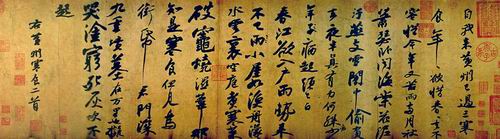 自我来黄州已過三寒
食年〻欲惜春〻去不
容惜今年又苦雨兩月秋
蕭瑟卧聞海棠花泥
汙燕支雪闇中偷負
去夜半真有力何殊少
年子病起頭已白
春江欲入戶雨勢来
不已雨小屋如漁舟濛〻
水雲裏空庖煮寒菜
破竈燒濕葦那
知是寒食但見烏
銜帋君門深
九重墳墓在万里也擬
哭塗窮死灰吹不
起
右黄州寒食二首